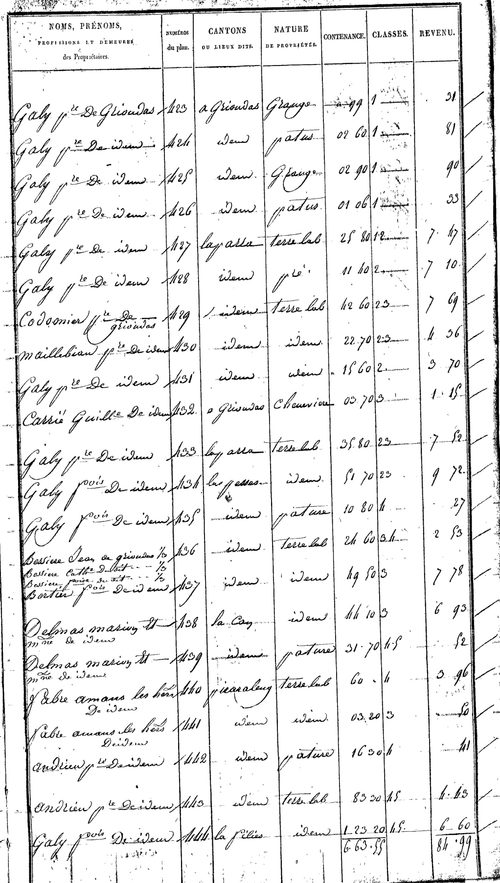 NOMS, PRÉNOMS, PROFESSIONS ET DEMEURES des Propriétaires. NUMÉROS du plan. CANTONS OU LIEUX DITS. NATURE DE PROPRIÉTÉS. CONTENANCE. CLASSES. REVENU.
Galy pre De Grioudas 423 a Grioudas Grange " 99 1 31
Galy pre De idem 424 idem patus 02 60 1 81
Galy pre De idem 425 idem Grange 02 90 1 90
Galy pre De idem 426 idem patus 01 06 1 33
Galy pre De idem 427 laparra terre lab 25 80 12 7 47
Galy pre De idem 428 idem pré 11 40 2 7 10
Codomier pre De grioudas 429 idem terre lab 42 60 23 7 69
maillebiau pre De idem 430 idem idem 22 70 23 4 36
Galy pre De idem 431 idem idem 15 60 2 3 70
Carrié Guille De idem 432 a Grioudas Cheneviere 03 70 3 1 15
Galy pre De idem 433 laparra terre lab 35 80 23 7 52
Galy fois De idem 434 las pesses idem 51 70 23 9 72
Galy fois De idem 435 idem pature 10 80 4 27
Bessiere Jean de grioudas 1/3 436 idem terre lab 24 60 34 2 53
Bessiere Cathe du dit 1/3
Bessiere du dit 1/3
Bertier fois De idem 437 idem idem 49 50 3 7 78
Delmas marion Et 438 idem 44 10 3 6 93
mne de idem
Delmas marion Et 439 idem pature 31 70 45 52
mne de idem
fabre amans les hers 440 terre lab 60 " 4 3 96
De idem
fabre amans les hers 441 idem idem 03 20 3 50
De idem
andrieu pre De idem 442 idem pature 16 30 4 41
andrieu pre De idem 443 idem terre lab 83 30 45 4 43
Galy fois De idem 444 la filies idem 1 23 20 45 6 60
6 63 55 84 99